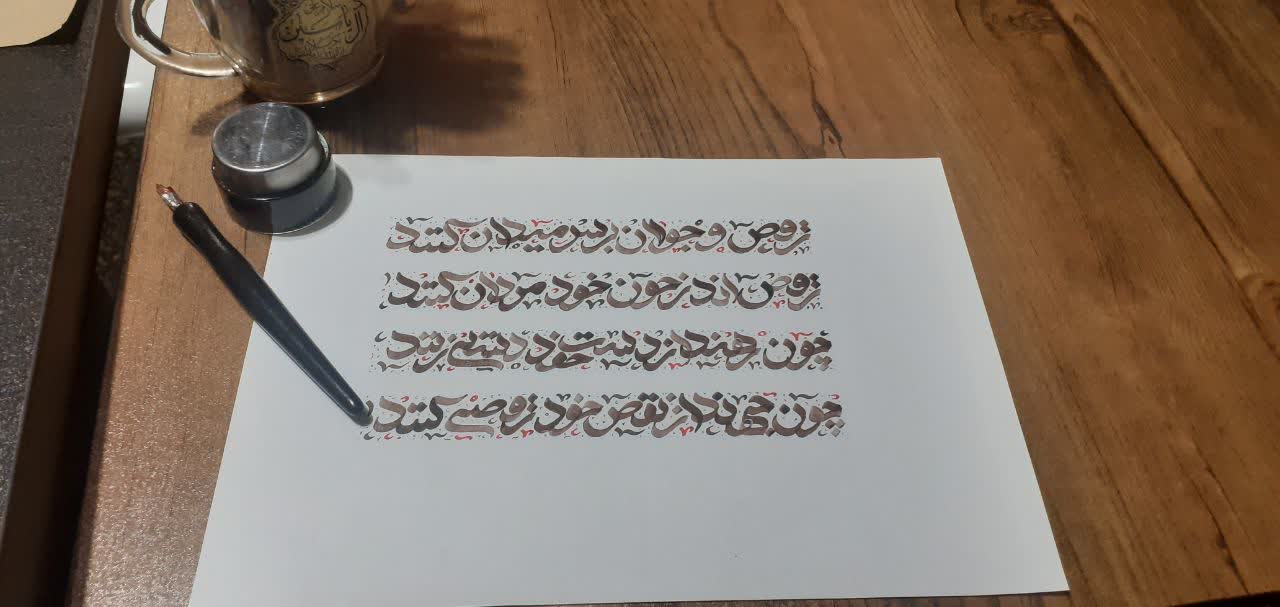 رقص و جولان بر سر میدان کنند
رقص اندر خون خود مردان کنند
چون رهند از دست خود دستی زنند
چون جهند از نقص خود رقصی کنند